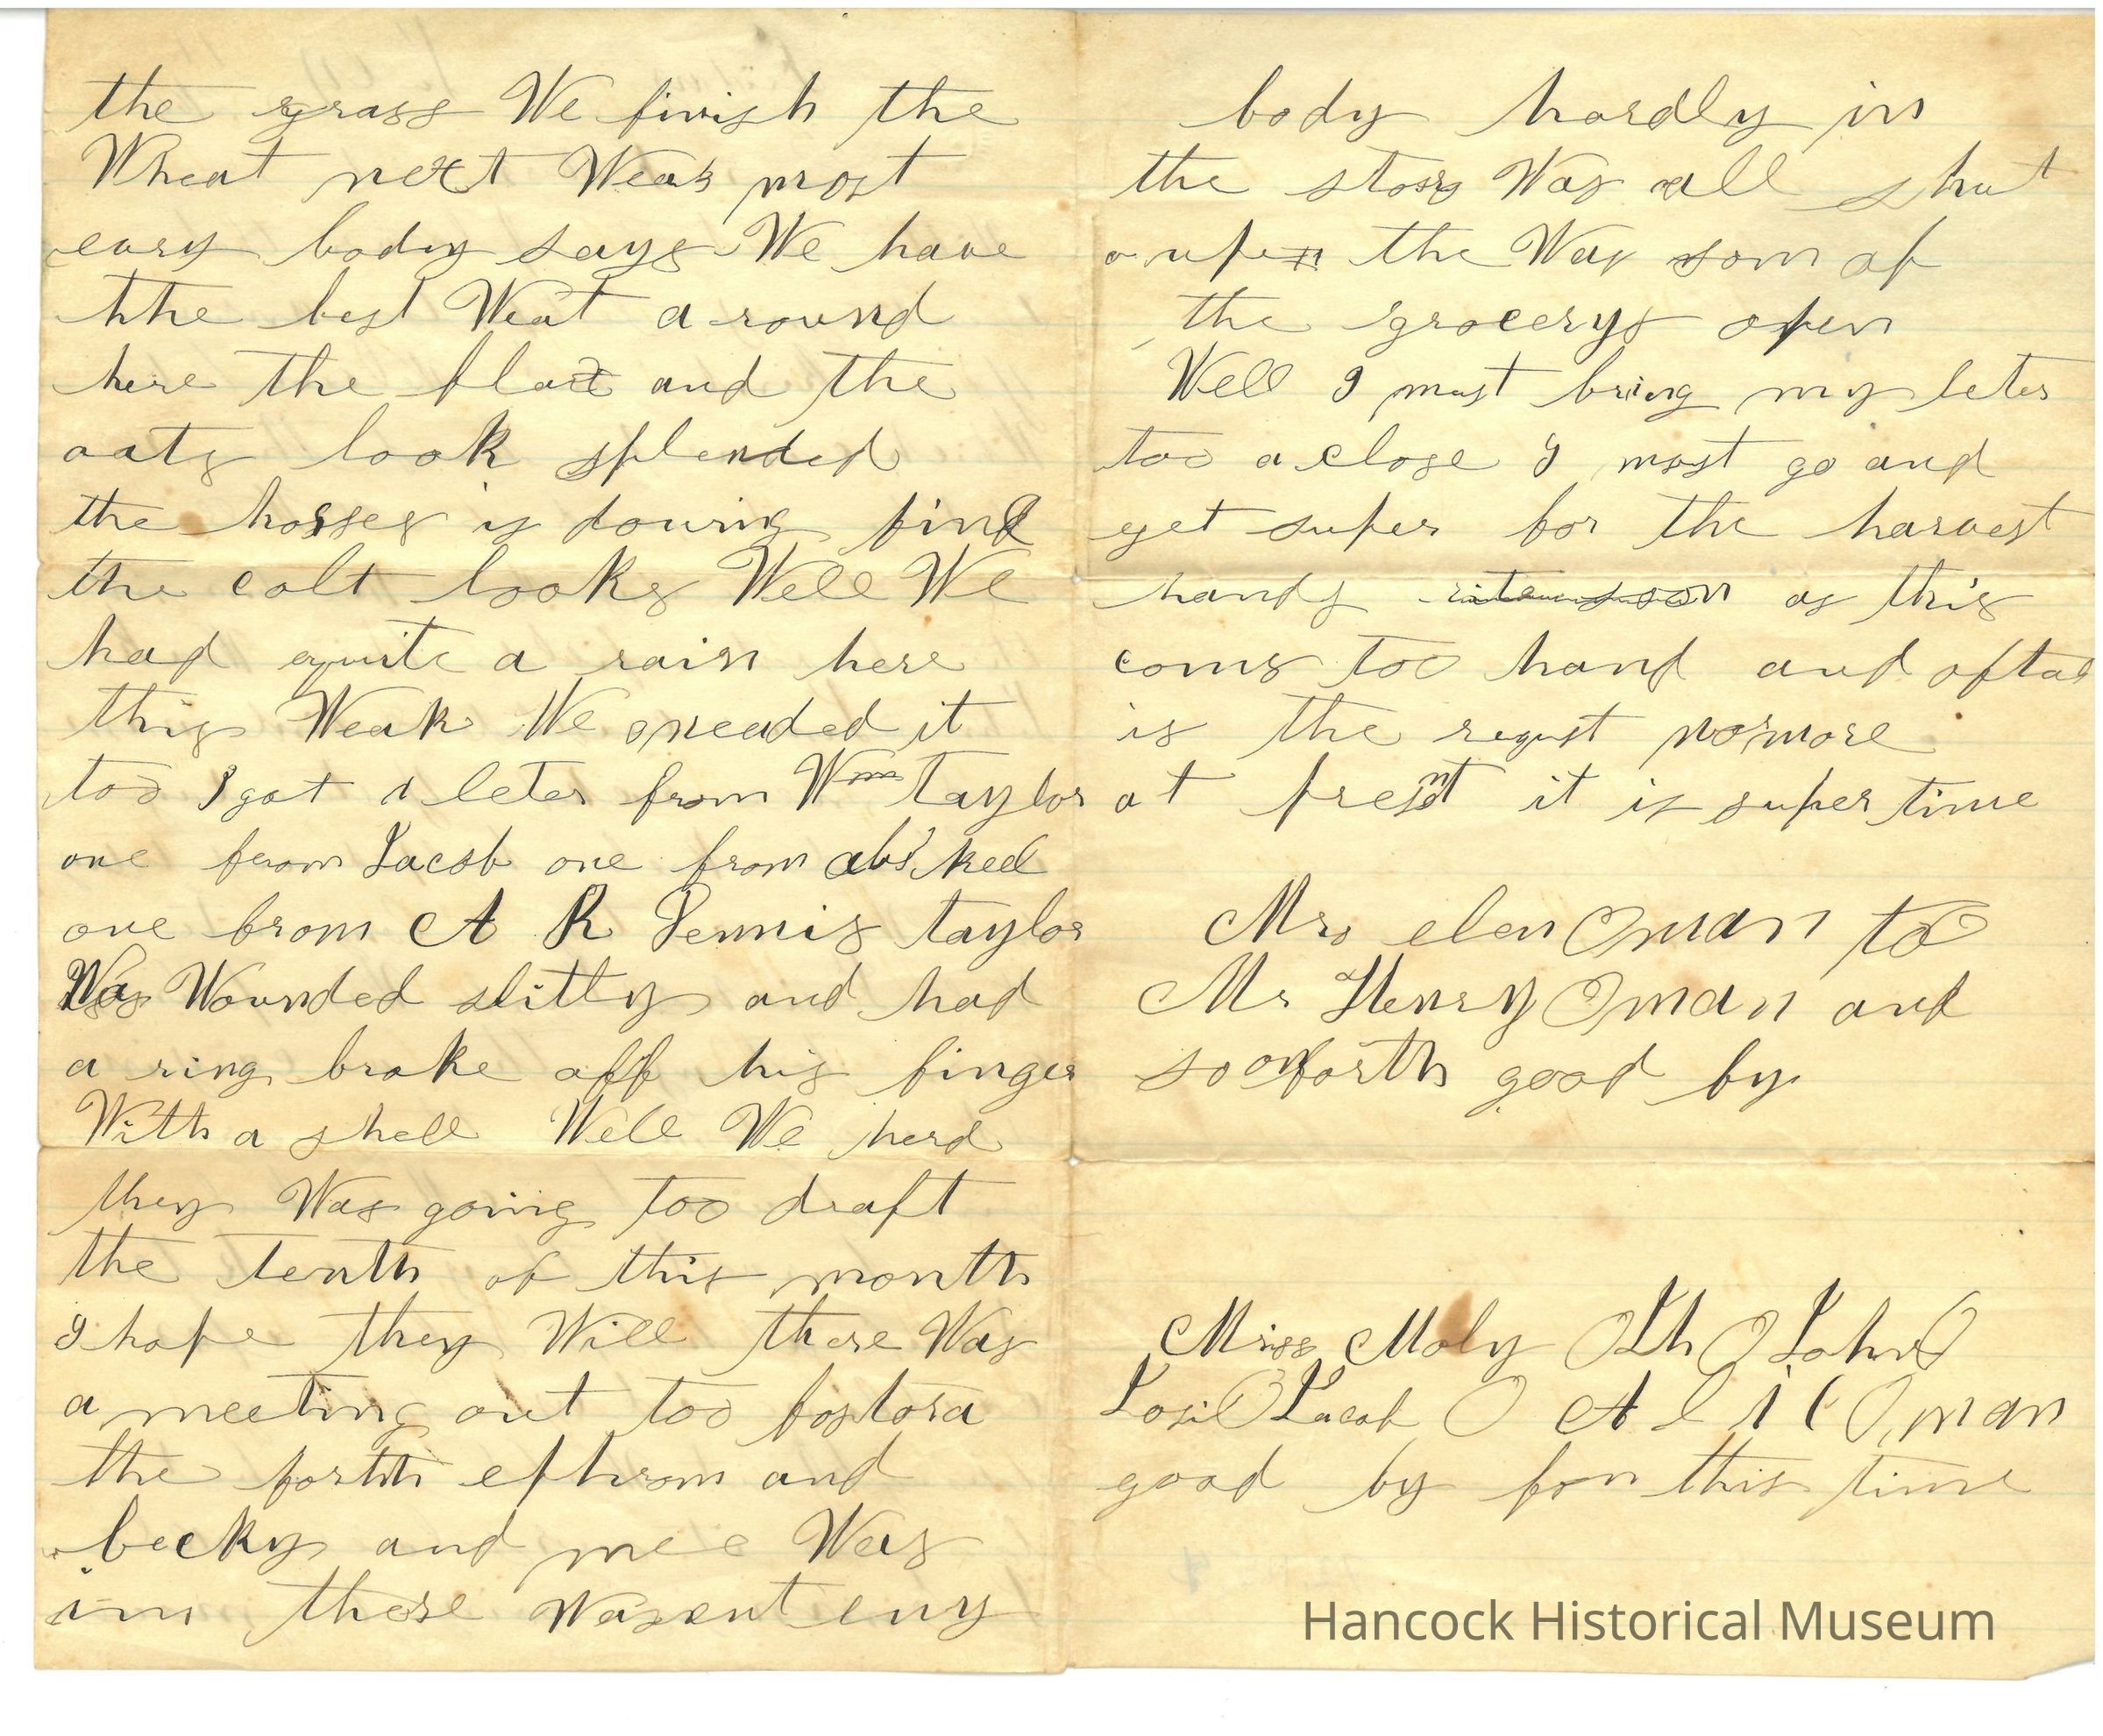 the grass We finish the
Wheat next Weak most
evry body says We have
thhe best Weat a round
here the flax and the
oats look splended
the horses is douing fine
the colt looks Well We
had quite a rain here
this Weak We neaded it
too I got a leter from Wm Taylor
one from Jacob one from
one from A R Dennis taylor
Was Wounded slitty and had
a ring broke off his finger
With a shell Well We herd
they Was going too draft
the tenth of this month
I hope they Will there Was
a meeting out too fostora
the forth efhrom and
becky and mee Was
inn there Wasent eny
body hardly in
the stors Was all shut
up the Was som of
the grocerys open
Well I must bring my leter
too a close I must go and
get super for the harvest
hands as this
coms too hand and oftad
is the requst nomore
at present it is super time
Mrs elen Oman to
Mr Henry Oman and
so onforth good by
Miss Moly O Th O John O
Josi O Jacob O Oman
good by for this time
Hancock Historical Museum